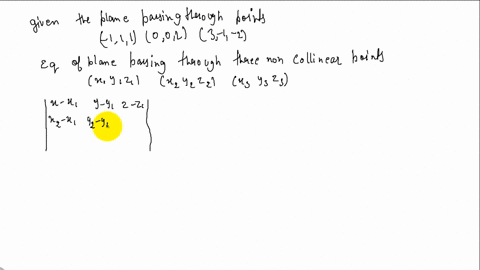 given the plane passing through points
(-1,1,1) (0,0,2) (3,-1,-2)
Eq of plane passing through three non collinear points
(x₁ y₁ z₁) (x₂ y₂ z₂) (x₃ y₃ z₃)
x-x₁ y-y₁ z-z₁
x₂-x₁ y₂-y₁